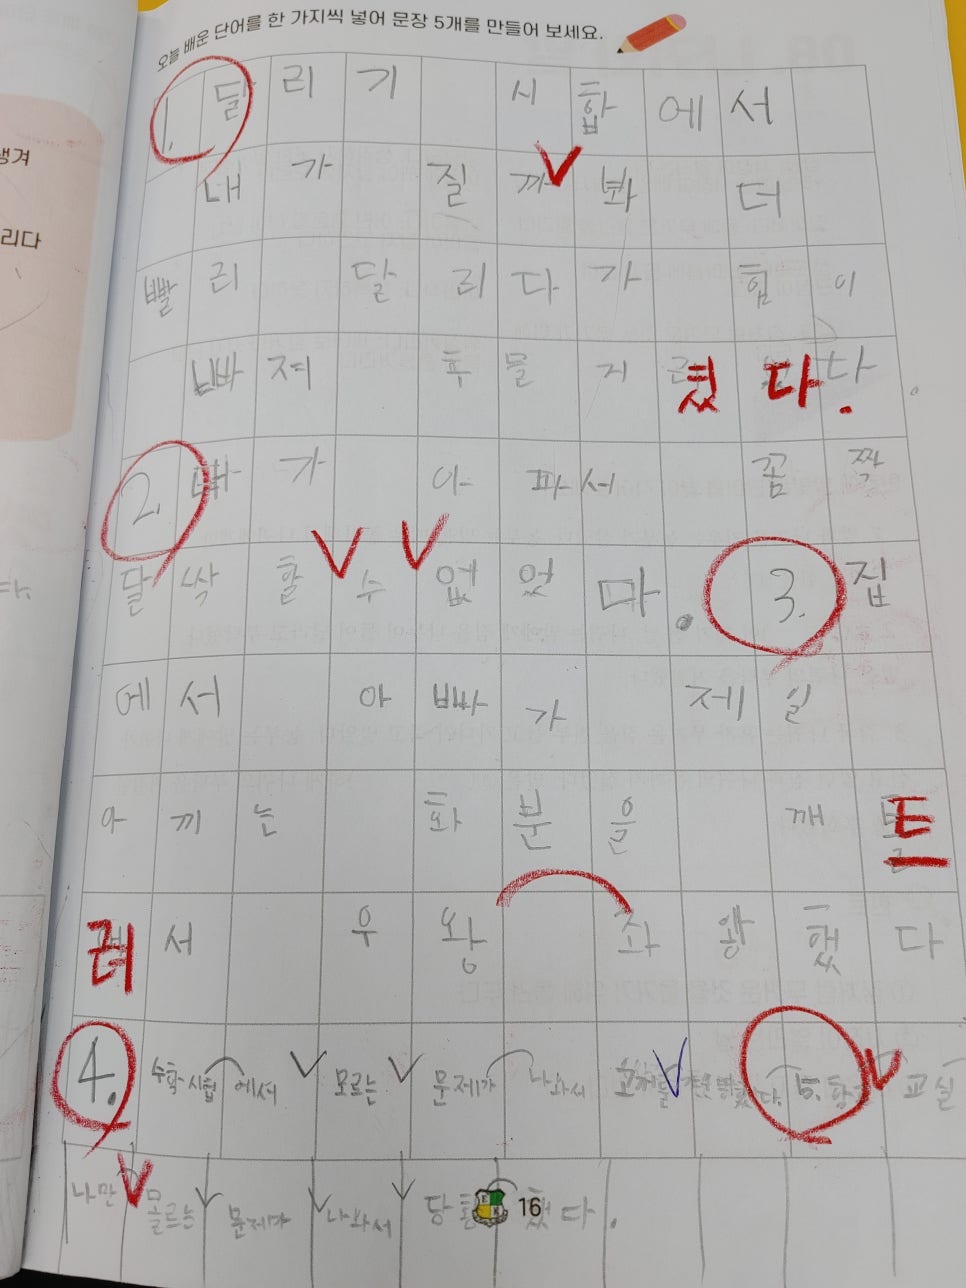 오늘 배운 단어를 한 가지씩 넣어 문장 5개를 만들어 보세요.
생겨
리다
1. 달리기 시합에서
내가 질까 봐 더
빨리 달리다가 힘이
빠져 후물거렸다.
2. 배가 아파서 꼼짝
달싹할 수 없었다. 3. 집
에서 아빠가 제일
아끼는 화분을 깨트
려서 우왕좌왕했다
4. 수학 시험에서 모르는 문제가 나와서 5. 교실
나만 모르는 문제가 나와서 당황했다.
16